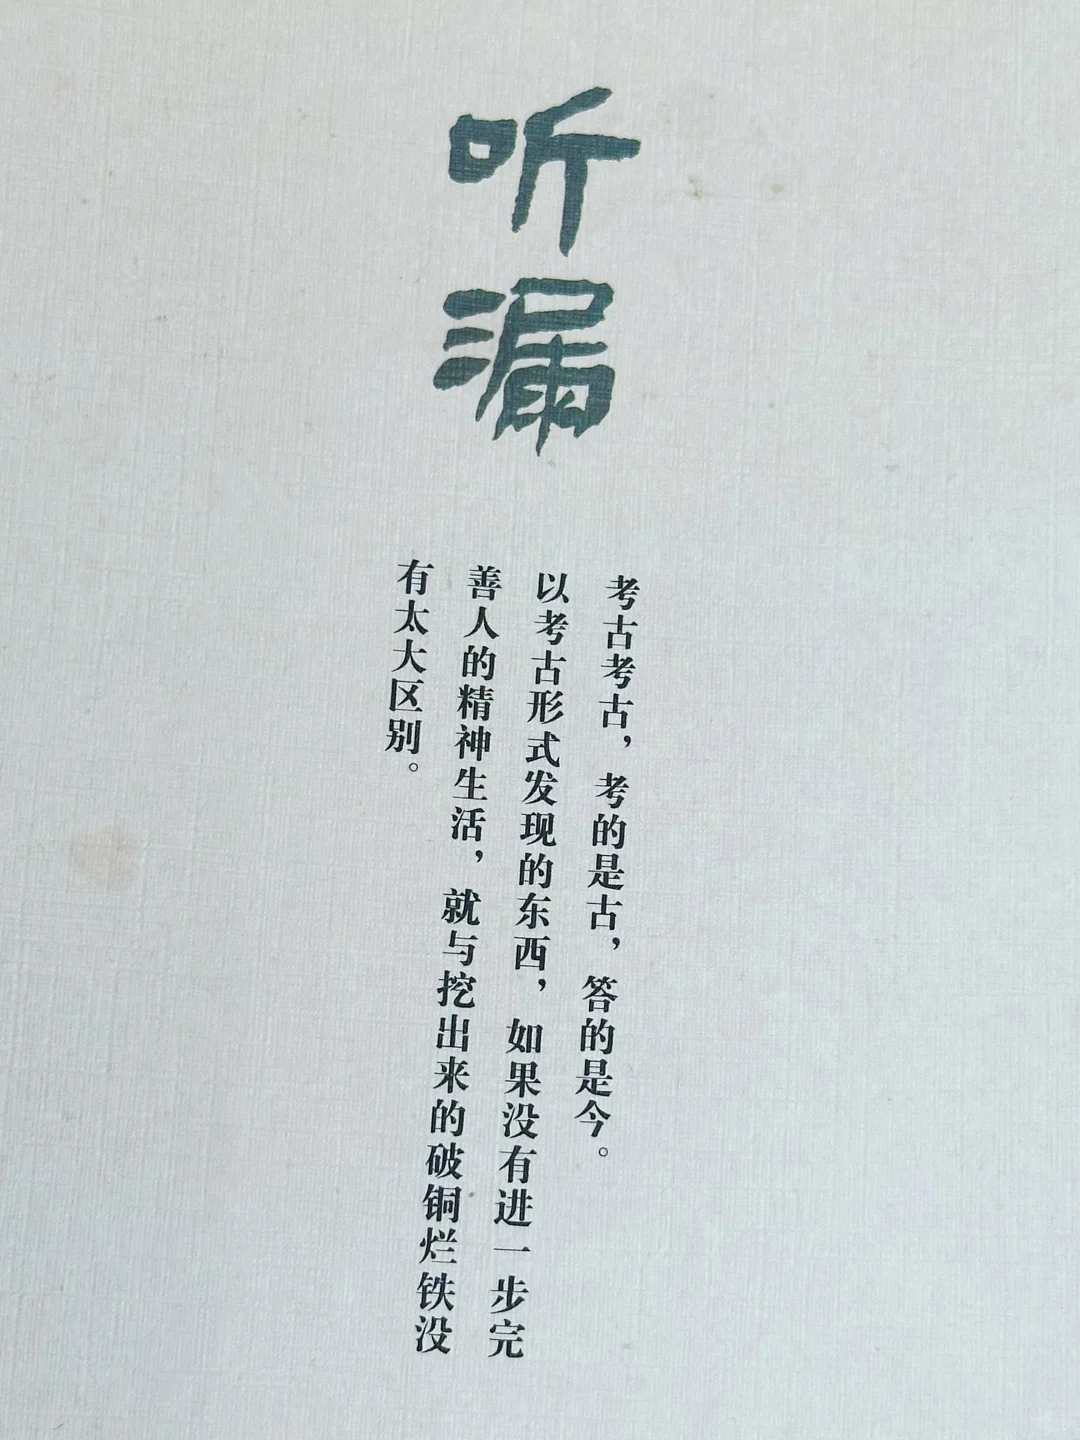 听漏
考古考古，考的是古，答的是今。
以考古形式发现的东西，如果没有进一步完
善人的精神生活，就与挖出来的破铜烂铁没
有太大区别。